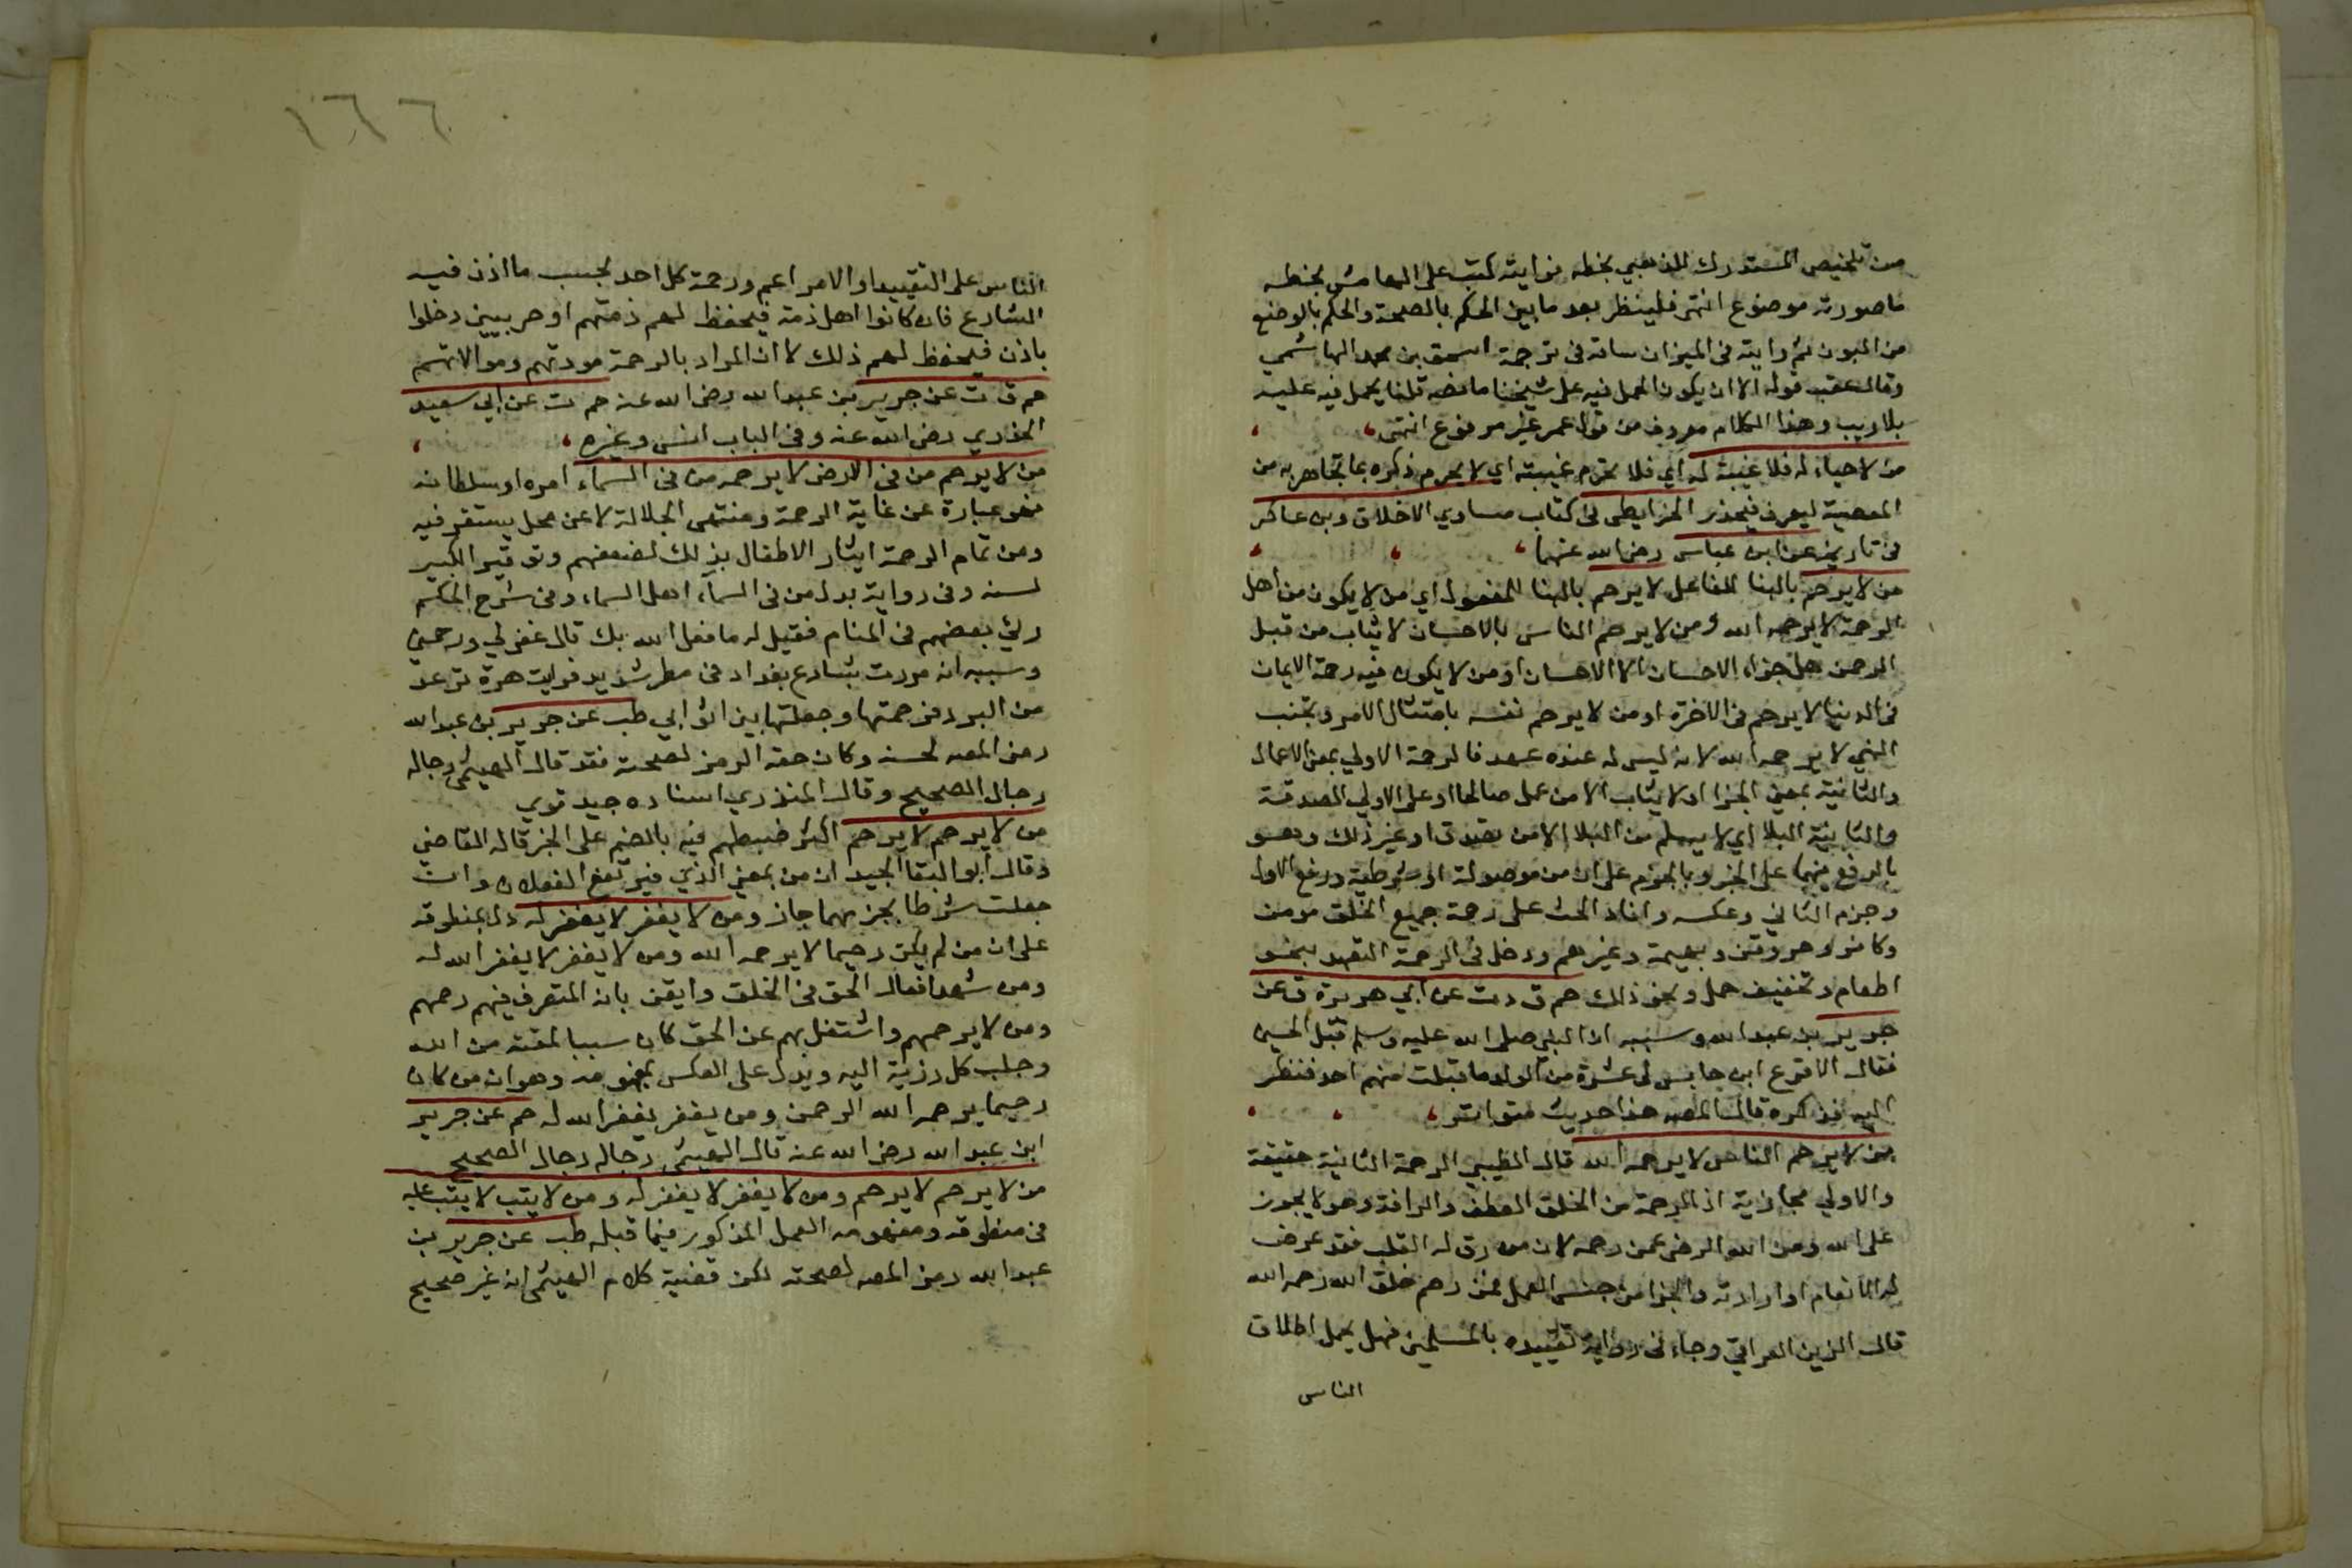 من تلخيص المستدرك للذهبي بخطه فرايته كتب على الهامش بخطه
ما صورته موضوع انتهى فلينظر بعد ما بين الحكم بالصحة والحكم بالوضع
من البون ثم رايته في الميزان ساقه في ترجمة اسحق بن محمد الهاشمي
وقال عقب قوله الا ان يكون الحمل فيه على شيخنا ما نصه قلنا يحمل فيه عليه
بلا ريب وهذا الكلام معروف من قول عمر غير مرفوع انتهى
من لا حياء له فلا غيبة له اي فلا تحرم غيبته اي لا يحرم ذكره بما تجاهر به من
المعصية ليعرف فيحذر الخرايطي في كتاب مساوي الاخلاق وبن عساكر
في تاريخه عن ابن عباس رضي الله عنهما
من لا يرحم بالبنا للفاعل لا يرحم بالبنا للمفعول اي من لا يكون من اهل
الرحمة لا يرحمه الله او من لا يرحم الناس بالاحسان لا يثاب من قبل
الرحمن هل جزاء الاحسان الا الاحسان او من لا يكون فيه رحمة الايمان
في الدنيا لا يرحم في الاخرة او من لا يرحم نفسه بامتثال الامر وتجنب
النهي لا يرحمه الله لانه ليس له عنده عهد فالرحمة الاولي بمعنى الاعمال
والثانية بمعنى الجزا او لا يثاب الا من عمل صالحا او على الاولي الصدقة
والثانية البلا اي لا يسلم من البلا الا من تصدق او غير ذلك وهو
بالرفع فيهما على الخبر وبالجزم على ان من موصولة او شرطية ورفع الاول
وجزم الثاني وعكسه وافاد الحث على رحمة جميع الخلق مومن
وكافر وحر وقن وبهيمة وغيرهم ودخل في الرحمة التعهد بنحو
اطعام وتخفيف حمل ونحو ذلك حم ق د ت عن ابي هريرة ق عن
جرير بن عبد الله وسببه ان النبي صلى الله عليه وسلم قبل الحسين
فقال الاقرع ابن حابس لي عشرة من الولد ما قبلت منهم احد فنظر
اليه فذكره قال المصـ هذا حديث متواتر
من لا يرحم الناس لا يرحمه الله قال الطيبي الرحمة الثانية حقيقة
والاولي مجازية اذ الرحمة من الخلق العطف والرافة وهو لا يجوز
على الله ومن الله الرضى عمن رحمه لان من رق له القلب فقد عرض
له الانعام او ارادته والجزا من جنس العمل فمن رحم خلق الله رحمه الله
قال الزين العراقي وجاء في رواية تقييده بالمسلمين فهل يحمل اطلاق
الناس
١٦٦
الناس على التقييد او الامر اعم ورحمة كل احد بحسب ما اذن فيه
الشارع فان كانوا اهل ذمة فيحفظ لهم ذمتهم او حربيين دخلوا
باذن فيحفظ لهم ذلك لا ان المراد بالرحمة مودتهم وموالاتهم
حم ق ت عن جرير بن عبد الله رضي الله عنه حم ت عن ابي سعيد
الخدري رضي الله عنه وفي الباب انس وغيره
من لا يرحم من في الارض لا يرحمه من في السماء امره او سلطانه
فهو عبارة عن غاية الرحمة ومنتهى الجلالة لا عن محل يستقر فيه
ومن تمام الرحمة ايثار الاطفال بذلك لضعفهم وتوقير الكبير
لسنه وفي رواية بدل من في السماء اهل السماء وفي شرح الحكم
رئي بعضهم في المنام فقيل له ما فعل الله بك قال غفر لي ورحمني
وسببه انه مررت بشارع بغداد في مطر شديد فرايت هرة ترعد
من البرد فرحمتها وجعلتها بين اثوابي طب عن جرير بن عبد الله
رمز المصـ لحسنه وكان حقه الرمز لصحته فقد قال الهيثمي رجاله
رجال الصحيح وقال المنذري اسناده جيد قوي
من لا يرحم لا يرحم اكثر ضبطهم فيه بالضم على الخبر قاله القاضي
وقال ابو البقا الجيد ان من بمعنى الذي فيرتفع الفعلان وان
جعلت شرطا بجزمهما جاز ومن لا يغفر لا يغفر له دل بمنطوقه
على ان من لم يكن رحيما لا يرحمه الله ومن لا يغفر لا يغفر الله له
ومن شهد افعال الحق في الخلق وايقن بانه المتصرف فيهم رحمهم
ومن لا يرحمهم واشتغل بهم عن الحق كان سببا لمقته من الله
وجلب كل رزية اليه ويدل على العكس بمفهومه وهو ان من كان
رحيما يرحمه الله الرحمن ومن يغفر يغفر الله له حم عن جرير
ابن عبد الله رضي الله عنه قال الهيثمي رجاله رجال الصحيح
من لا يرحم لا يرحم ومن لا يغفر لا يغفر له ومن لا يتب لا يتب عليه
في منطوقه ومفهومه العمل المذكور فيما قبله طب عن جرير بن
عبد الله رمز المصـ لصحته لكن قضية كلام الهيثمي انه غير صحيح